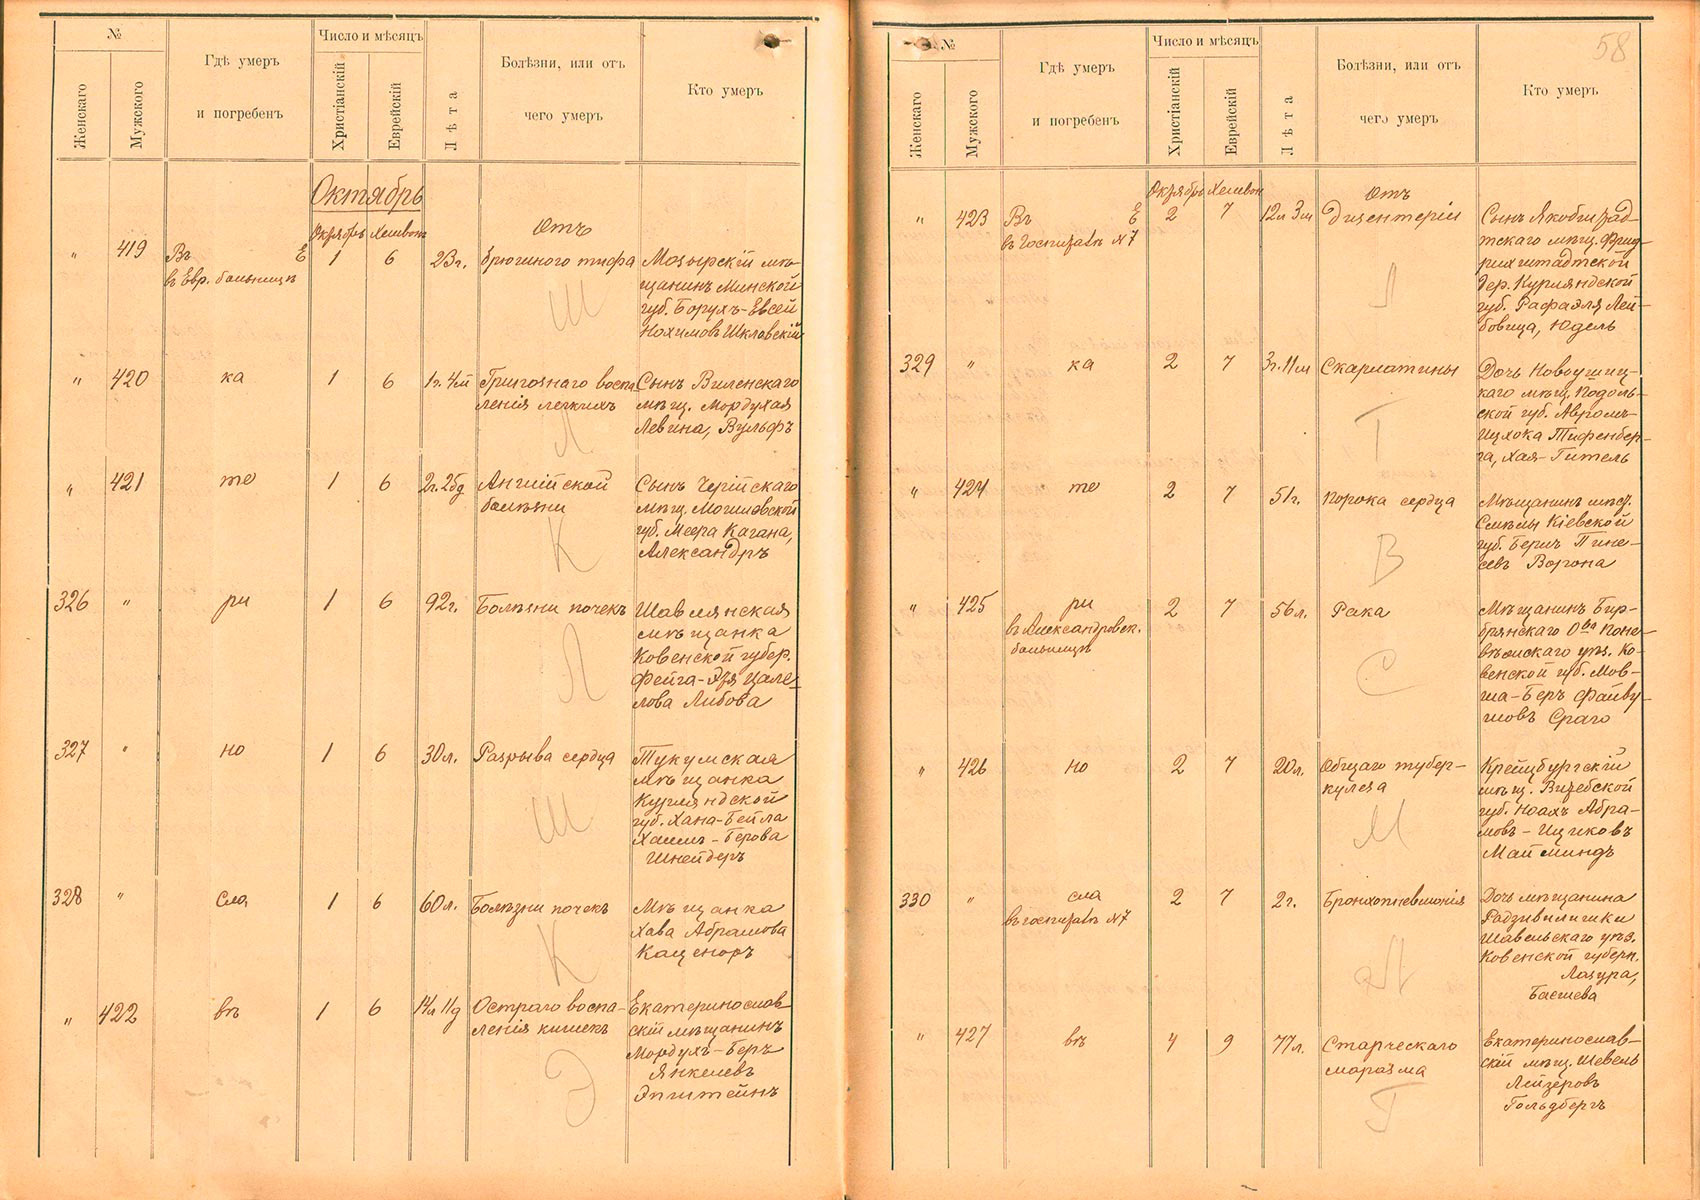 №
Женскаго
Мужского
Гдѣ умеръ
и погребенъ
Число и мѣсяцъ
Христіанскій
Еврейскій
Лѣта
Болѣзни, или отъ
чего умеръ
Кто умеръ
Октябрь
Октябрь Хешвонъ
Отъ
" 419 Въ Е 1 6 23г. брюшного тифа Мозырскій мѣ-
въ Евр. больницѣ щанинъ Минской
Ш губ. Борухъ-Евсей
Нохимовъ Шкловскій
" 420 ка 1 6 1г. 4м Грипознаго воспа Сынъ Виленскаго
ленія легкихъ мѣщ. Мордухая
Л Левина, Вульфъ
" 421 те 1 6 2г. 25д Англійской Сынъ Черійскаго
болѣзни мѣщ. Могилевской
К губ. Меера Кагана,
Александръ
326 " ри 1 6 92г. Болѣзни почекъ Шавлянская
мѣщанка
Ковенской губер.
Л Фейга-Эля Цале-
лова Либова
327 " но 1 6 30л. Разрыва сердца Тукумская
мѣщанка
Курляндской
Ш губ. Хана-Бейла
Хаимъ-Герова
Шнейдеръ
328 " сла 1 6 60л. Болѣзни почекъ Мѣщанка
Хава Абрамова
К Каценоръ
" 422 въ 1 6 14л 11д Остраго воспа- Екатеринослав
ленія кишекъ скій мѣщанинъ
Мордухъ-Беръ
Э Янкелевъ
Эпштейнъ
58
№
Женскаго
Мужского
Гдѣ умеръ
и погребенъ
Число и мѣсяцъ
Христіанскій
Еврейскій
Лѣта
Болѣзни, или отъ
чего умеръ
Кто умеръ
Октябрь Хешвон
Отъ
" 423 Въ Е 2 7 12л 3м Дизентеріи Сынъ Якобштад-
въ Госпиталѣ №7 тскаго мѣщ. Фрид-
рихштадтской
Л Кур­ляндской
губ. Рафаэля Лей-
бовица, Юдель
329 " ка 2 7 3г. 11м Скарлатины Дочь Новоушиц-
каго мѣщ. Подоль-
Т ской губ. Авромъ-
Ицхока Тифенбер-
га, Хая-Гитель
" 424 те 2 7 51г. Порока сердца Мѣщанинъ мѣст.
Смѣлы Кіевской
В губ. Бериъ Пине-
севъ Ворона
" 425 ри 2 7 56л. Рака Мѣщанинъ Бир-
въ Александровск. брянскаго Оᵇᵃ Поне-
больницѣ вѣжскаго уѣз. Ко-
С венской губ. Мов-
ша-Беръ Файву-
шовъ Сраго
" 426 но 2 7 20л. Общаго тубер- Крейцбургскій
кулеза мѣщ. Витебской
губ. Ноахъ Абра-
М мовъ-Ициковъ
Майминдъ
330 " сла 2 7 2г. Бронхопневмонія Дочь мѣщанина
въ госпиталѣ №7 Радзивилишки
Шавельскаго уѣз.
Ковенской губерн.
Лазура,
Басшева
" 427 въ 4 9 77л. Старческаго Екатеринослав-
маразма скій мѣщ. Шевель
Лейзеровъ
Г Гольдбергъ